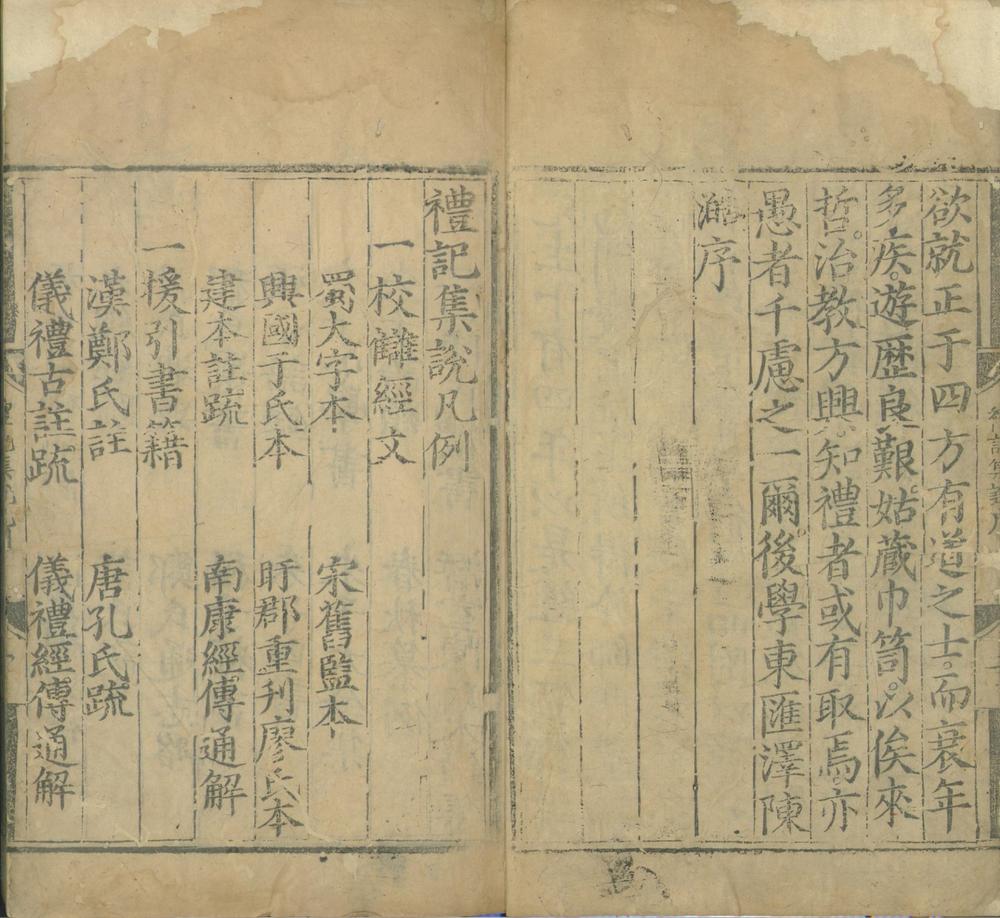 欲就正于四方有道之士。而衰年
多疾。遊歴良艱。姑蔵巾笥。以俟來
哲。治教方興。知禮者或有取焉。亦
愚者千慮之一爾。後學東匯澤陳
澔序
禮記集說凡例
一校讎經文
蜀大字本 宋舊監本
興國于氏本 盱郡重刊廖氏本
建本註疏 南康經傳通解
一援引書籍
漢鄭氏註 唐孔氏疏
儀禮古註疏 儀禮經傳通解